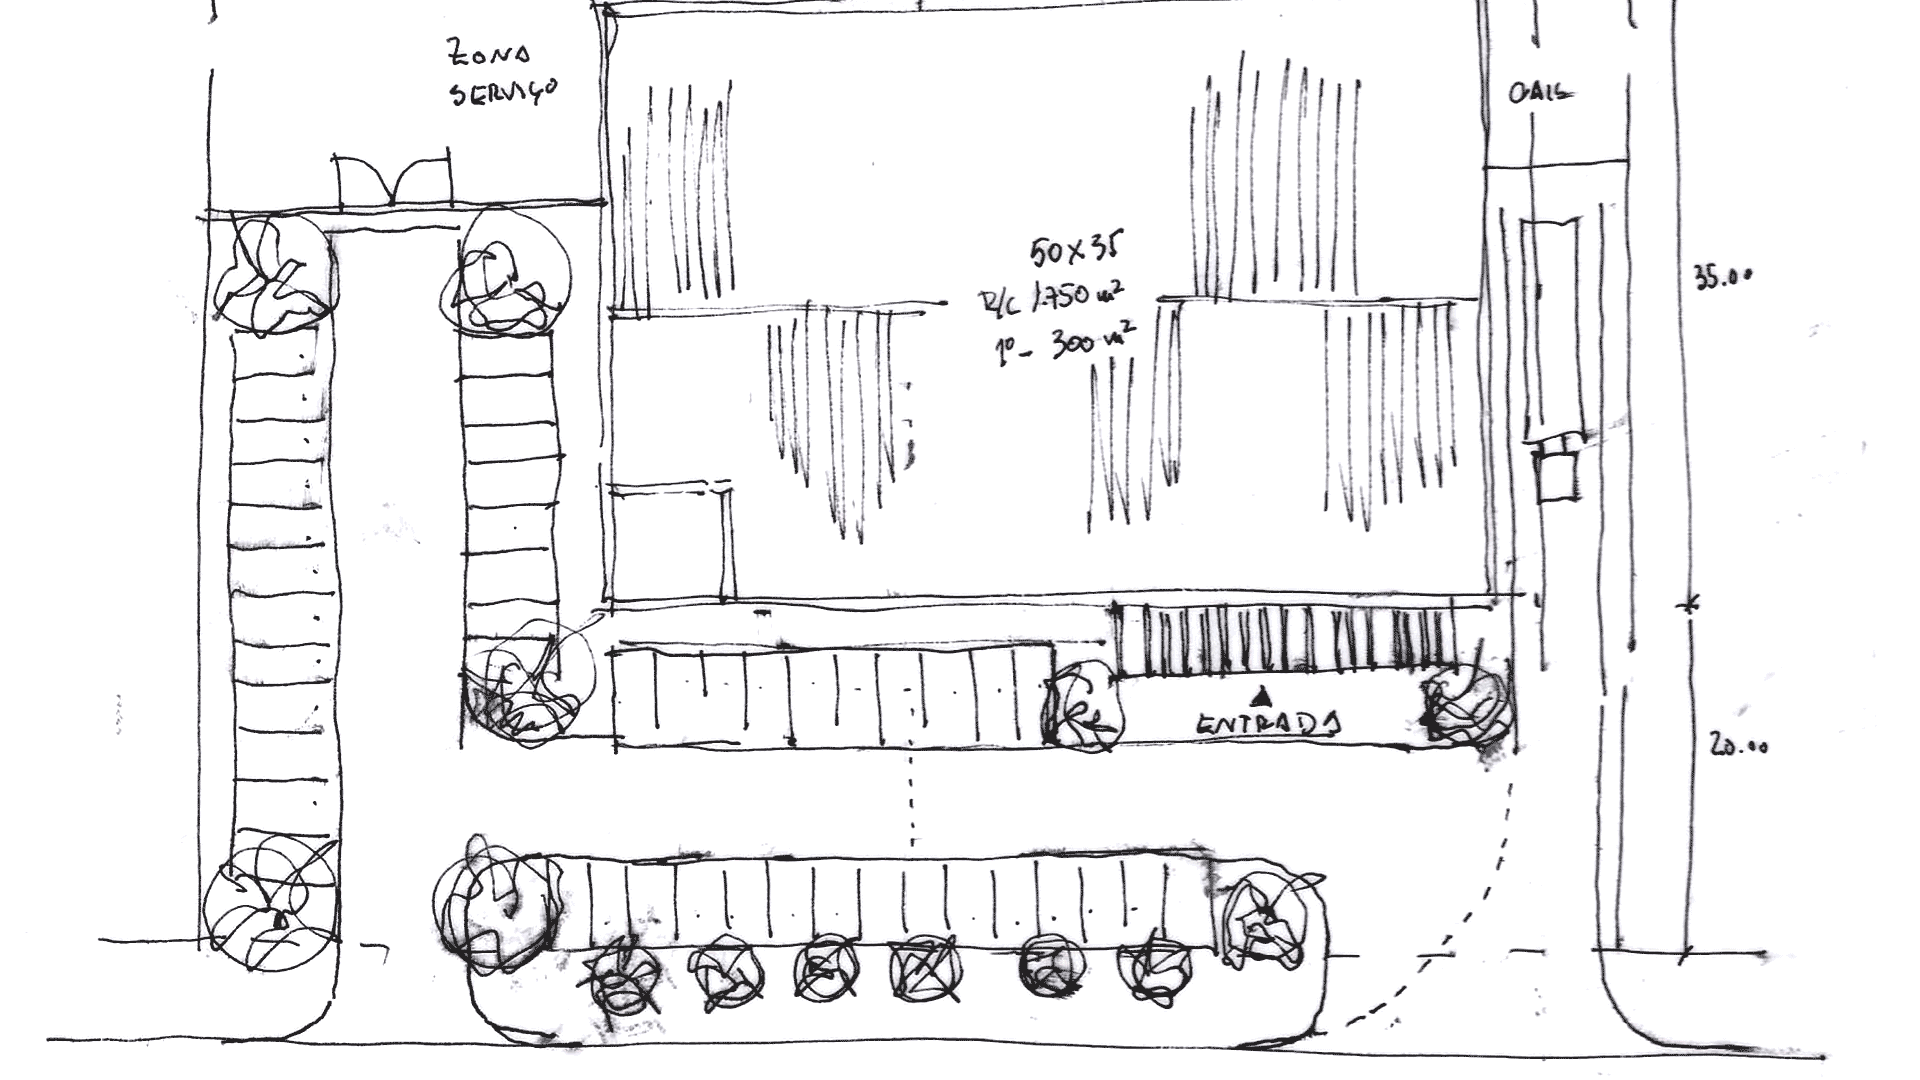 ZONA
SERVIÇO
CAIS
50x35
R/C 1.750 m²
1º - 300 m²
35.00
ENTRADA
20.00